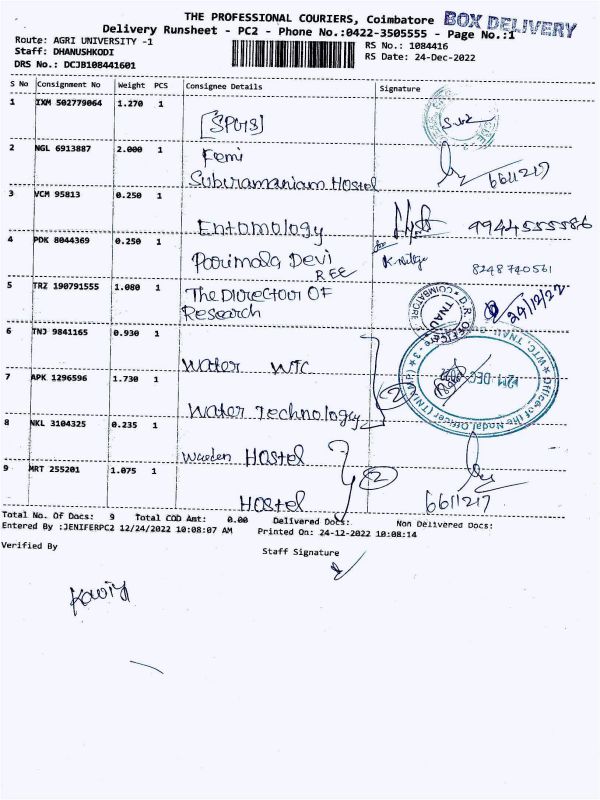 THE PROFESSIONAL COURIERS, Coimbatore BOX DELIVERY
Delivery Runsheet - PC2 - Phone No.:0422-3505555 - Page No.:1
Route: AGRI UNIVERSITY -1
RS No.: 1084416
Staff: DHANUSHKODI
RS Date: 24-Dec-2022
DRS No.: DCJB108441601
S No Consignment No Weight PCS Consignee Details Signature
1 IXM 502779064 1.270 1
[SPGS]
2 NGL 6913887 2.000 1 Femi
Subiramaniam Hostel 6611217
3 VCM 95813 0.250 1
Entomology 9944555586
4 PDK 8044369 0.250 1 Poorimala Devi
REE 8248740561
5 TRZ 190791555 1.080 1 The Director OF
Research 24/12/22
COIMBATORE D.R. OFFICE TNAU
6 TNJ 9841165 0.930 1
Water WTC
7 APK 1296596 1.730 1
Water Technology 2
Office of the Nodal Officer (TNIAMP) WTC, TNAU, Coimbatore - 3
8 NKL 3104325 0.235 1
Warden Hostel
9 MRT 255201 1.075 1 2
Hostel 6611217
Total No. Of Docs: 9 Total COD Amt: 0.00 Delivered Docs: Non Delivered Docs:
Entered By :JENIFERPC2 12/24/2022 10:08:07 AM Printed On: 24-12-2022 10:08:14
Verified By Staff Signature